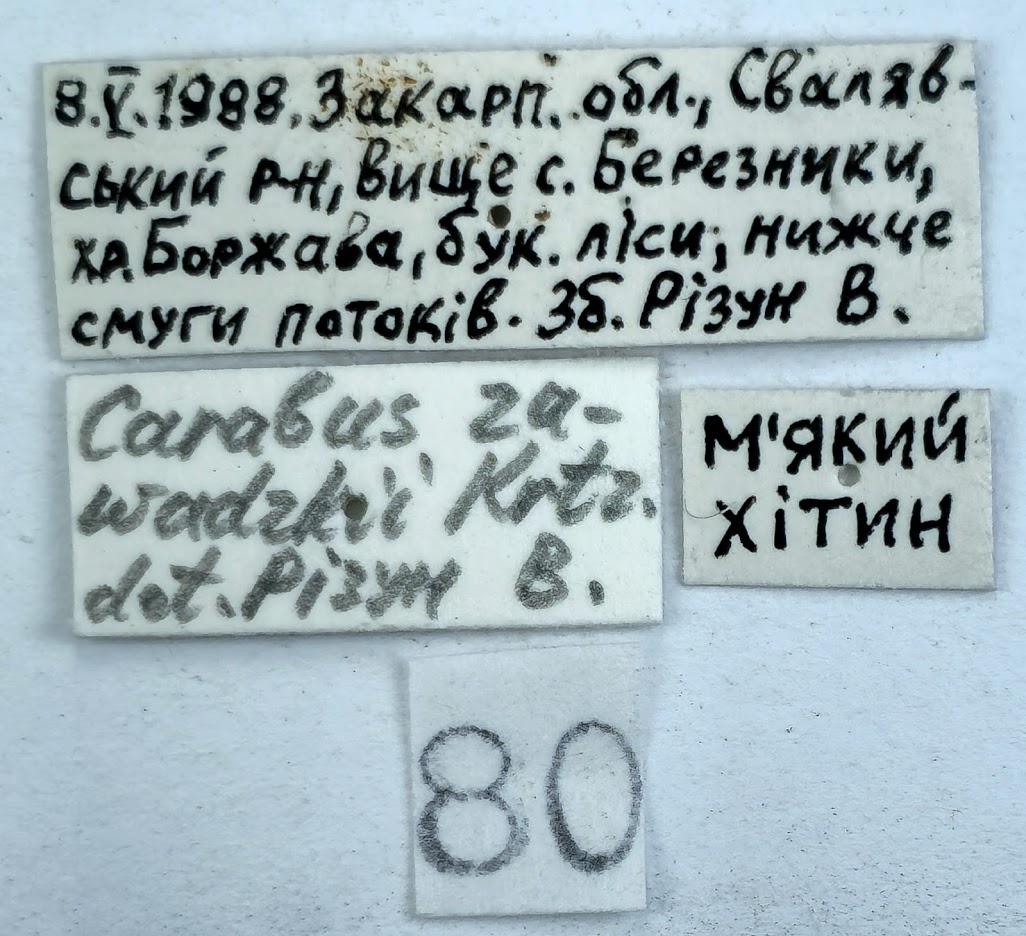 8.V.1988. Закарп. обл., Сваляв-
ський р-н, вище с. Березники,
хр. Боржава, бук. ліси, нижче
смуги потоків. Зб. Різун В.
Carabus za-
wadzkii Krtz.
det. Різун В.
м'який
хітин
80